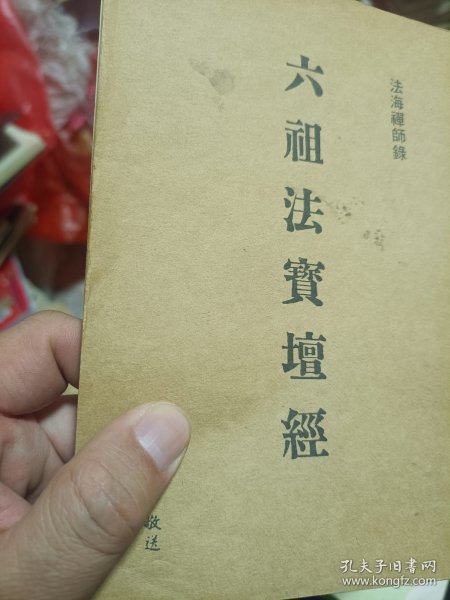 法海禪師錄
六祖法寶壇經
敬送
孔夫子旧书网
www.kongfz.com